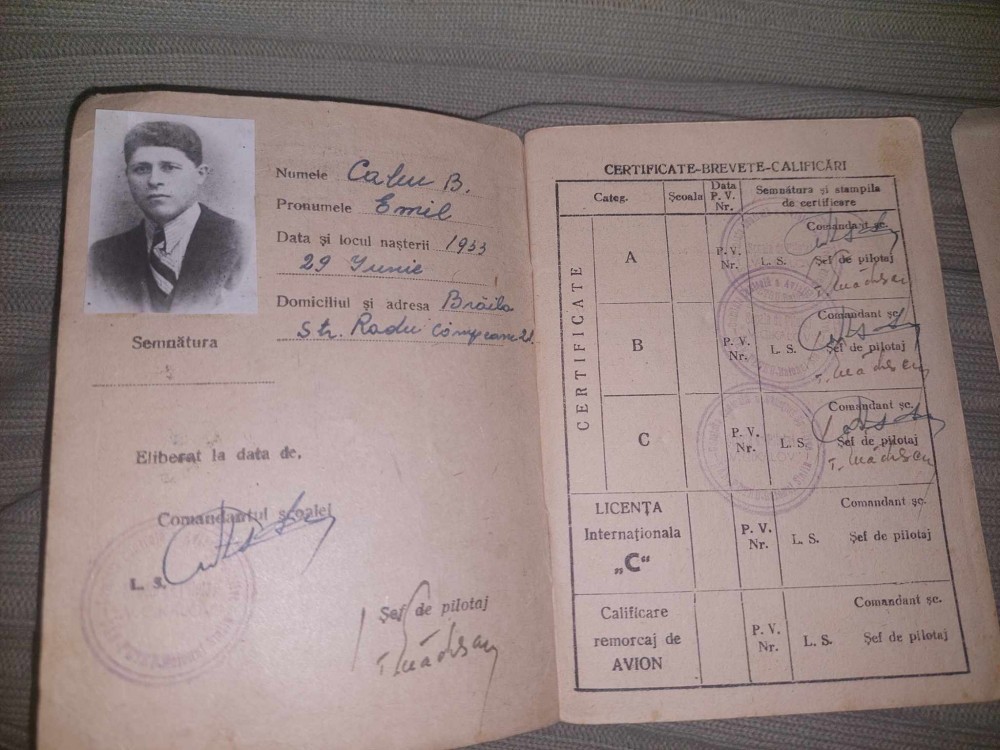 Numele
Pronumele Emil
Data și locul nașterii 1933
29 Iunie
Domiciliul și adresa Brăila
Str. Radu
Semnătura
Eliberat la data de.
Comandantul școalei
L. S.
Șef de pilotaj
CERTIFICATE-BREVETE-CALIFICĂRI
Categ. Școala Data P. V. Nr. Semnătura și stampila de certificare
CERTIFICATE
A P. V. Nr. L. S. Comandant șc. Șef de pilotaj
B P. V. Nr. L. S. Comandant șc. Șef de pilotaj
C P. V. Nr. L. S. Comandant șc. Șef de pilotaj
LICENȚA
Internaționala
„C“
P. V. Nr. L. S. Comandant șc. Șef de pilotaj
Calificare
remorcaj de
AVION
P. V. Nr. L. S. Comandant șc. Șef de pilotaj